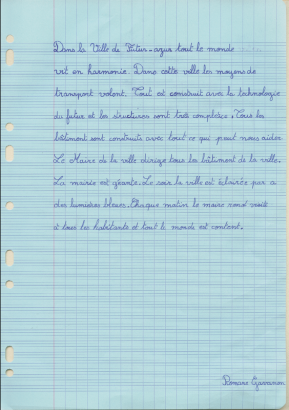 Dans la Ville de Futur-azur tout le monde
vit en harmonie. Dans cette ville les moyens de
transport volent. Tout est construit avec la technologie
du futur et les structures sont très complètes. Tous les
bâtiment sont construits avec tout ce qui peut nous aider
Le Maire de la ville dirige tous les bâtiment de la ville.
La mairie est géante. Le soir la ville est éclairée par a
des lumières bleues. Chaque matin le maire rend visite
à tous les habitants et tout le monde est content.
Romane